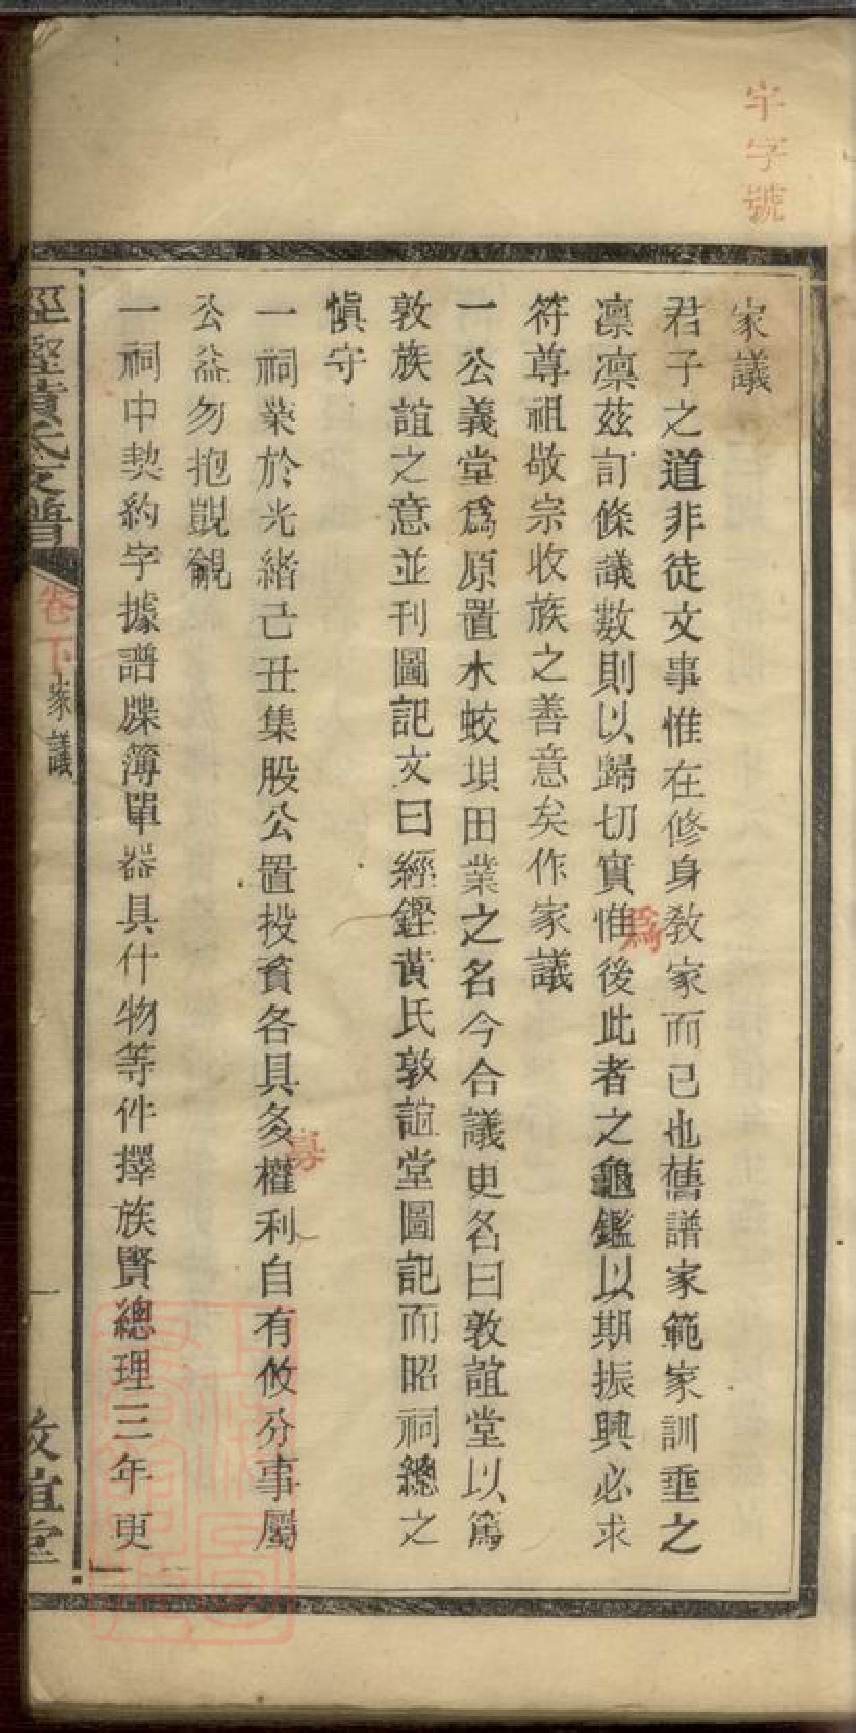 字字號
家議
君子之道非徒文事惟在修身敎家而已也舊譜家範家訓垂之
凛凛茲訂條議數則以歸切實惟後此者之龜鑑以期振興必求
爲
符尊祖敬宗收族之善意矣作家議
一公義堂爲原置水蛟垻田業之名今合議更名曰敦誼堂以篤
敦族誼之意並刊圖記文曰經鏗黄氏敦誼堂圖記而昭祠總之
愼守
一祠業於光緖己丑集股公置投資各具多權利自有攸分事屬
寡
公益勿抱覬覦
一祠中契約字據譜牒簿單器具什物等件擇族賢總理三年更
黄氏支譜
卷下
家議
一
敦誼堂